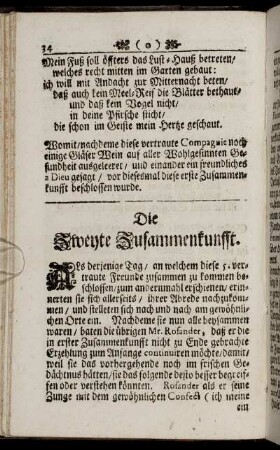 34 ( o )
Mein Fuß soll öffters das Lust-Hauß betreten/
welches recht mitten im Garten gebaut:
ich will mit Andacht zur Mitternacht beten/
daß auch kein Meel-Reif die Blätter bethaut/
und daß kein Vogel nicht/
in deine Pfirsche sticht/
die schon im Geiste mein Hertze geschaut.
Womit/ nachdeme diese vertraute Compagnie noch
einige Gläser Wein auf aller Wohlgesinnten Ge-
sundheit ausgeleeret/ und einander ein freundliches
a Dieu gesagt/ vor diesesmal diese erste Zusammen-
kunfft beschlossen wurde.
Die
Zweyte Zusammenkunfft.
ALs derjenige Tag/ an welchem diese 5. ver-
traute Freunde zusammen zu kommen be-
schlossen/ zum anderumahl erschienen/ erin-
nerten sie sich allerseits/ ihrer Abrede nachzukom-
men/ und stelleten sich nach und nach am gewöhnli-
chen Orte ein. Nachdeme sie nun alle beysammen
waren/ baten die übrigen Mr. Rosander, daß er die
in erster Zusammenkunfft nicht zu Ende gebrachte
Erzehlung zum Anfange continuiren möchte/ damit/
weil sie das vorhergehende noch im frischen Ge-
dächtnus hätten/ sie das folgende desto besser begreif-
fen oder verstehen könnten. Rosander als er seine
Zunge mit dem gewöhnlichen Confect ( ich meine
ein